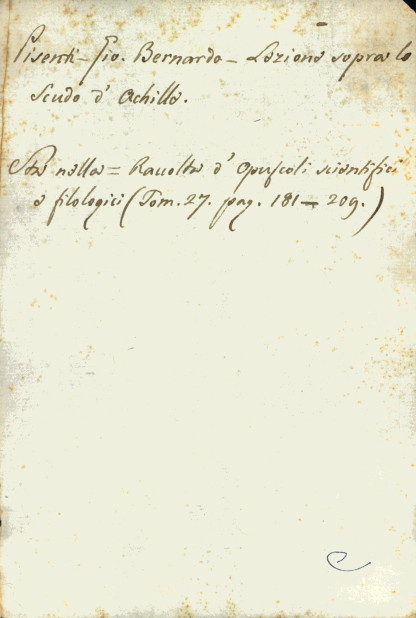 Pisenti - Gio. Bernardo - Lezione sopra lo
Scudo d' Achille.
Sta nella = Raccolta d' Opuscoli scientifici
e filologici (Tom. 27. pag. 181 - 209.)